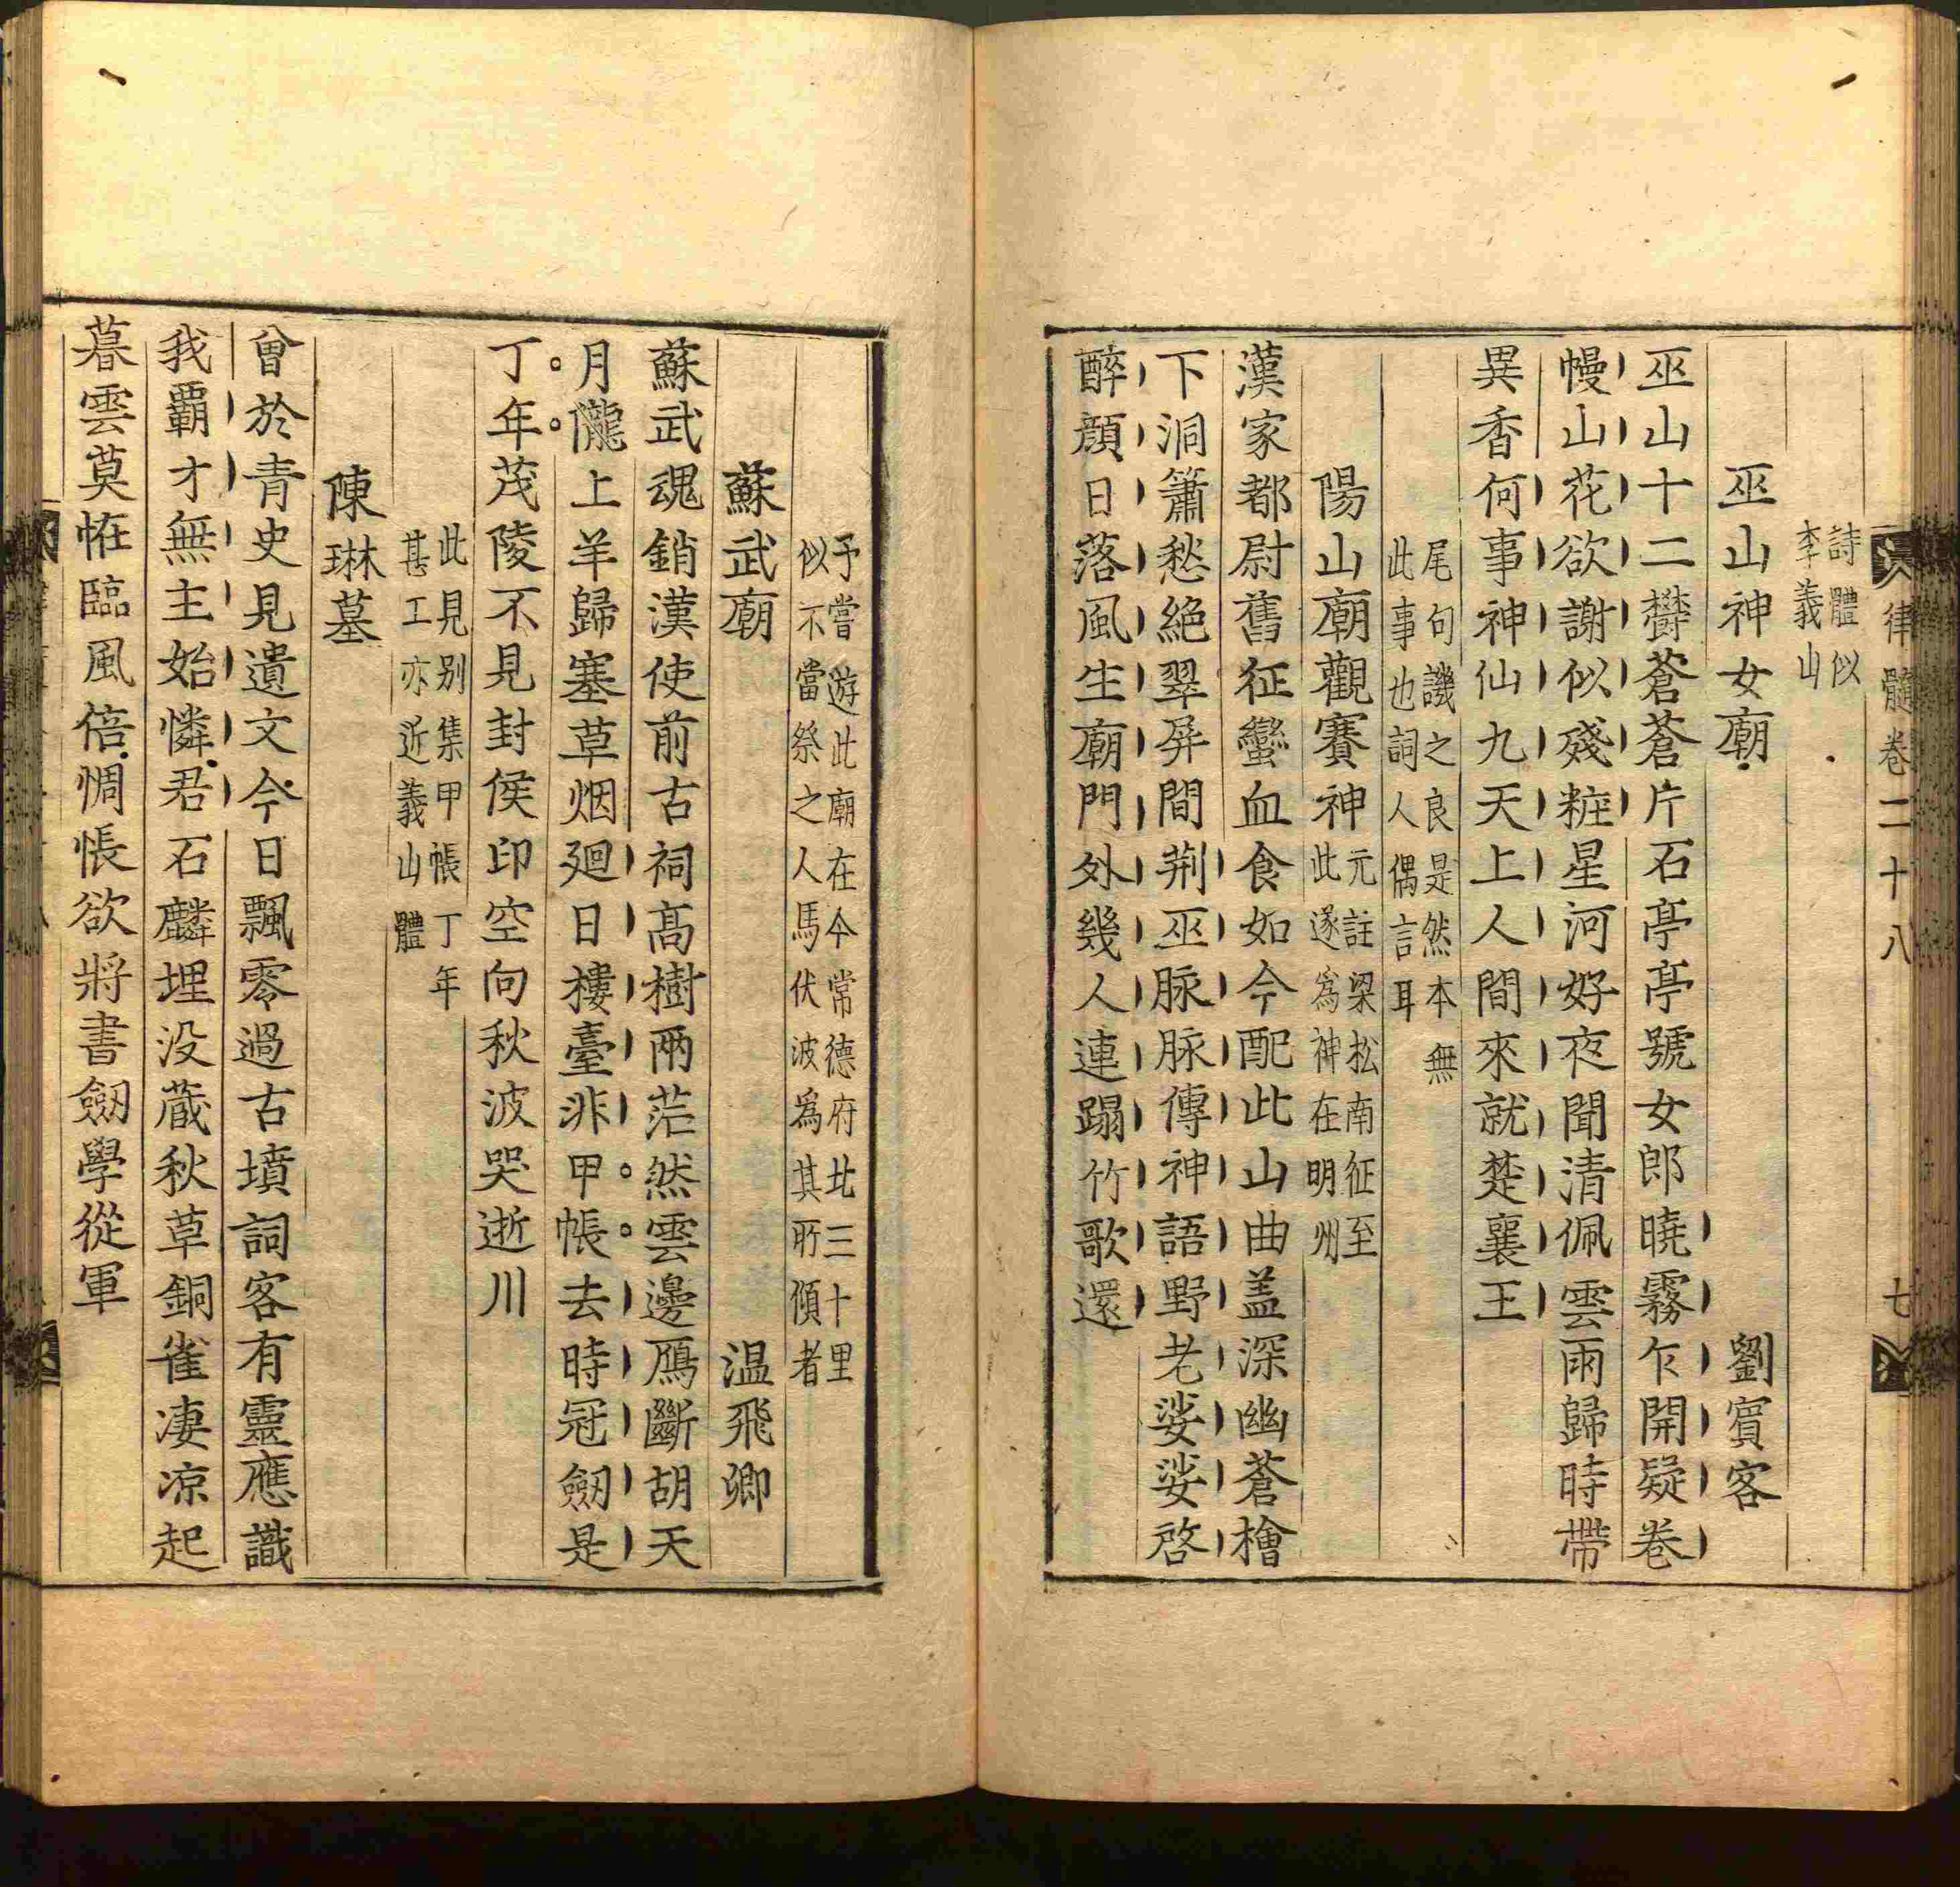 律髓卷二十八
七
詩體似
李義山
巫山神女廟 劉賓客
巫山十二欝蒼蒼片石亭亭號女郎曉霧乍開疑卷
幔山花欲謝似殘粧星河好夜聞清佩雲雨歸時帶
異香何事神仙九天上人間來就楚襄王
尾句譏之良是然本無
此事也詞人偶言耳
陽山廟觀賽神 元註梁松南征至
此遂為神在明州
漢家都尉舊征蠻血食如今配此山曲盖深幽蒼檜
下洞簫愁絶翠屏間荆巫脉脉傳神語野老娑娑啓
醉顔日落風生廟門外幾人連蹋竹歌還
予嘗遊此廟在今常德府北三十里
似不當祭之人馬伏波爲其所傾者
蘇武廟 温飛卿
蘇武魂銷漢使前古祠髙樹兩茫然雲邊鴈斷胡天
月隴上羊歸塞草烟廻日樓臺非甲帳去時冠劔是
丁年茂陵不見封侯印空向秋波哭逝川
此見别集甲帳丁年
甚工亦近義山體
陳琳墓
曽於青史見遺文今日飄零過古墳詞客有靈應識
我覇才無主始憐君石麟埋没蔵秋草銅雀凄凉起
暮雲莫恠臨風倍惆悵欲將書劔學從軍